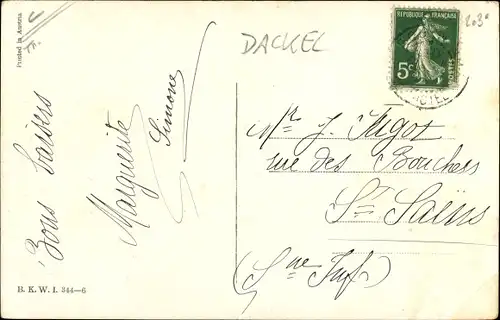 Printed in Austria
DACKEL
REPUBLIQUE FRANÇAISE
5c
POSTES
Bons baisers
Marguerite
Simone
Mr J. Figot
rue des Bouchers
St Saëns
(Sne Infre)
B. K. W. I. 344—6